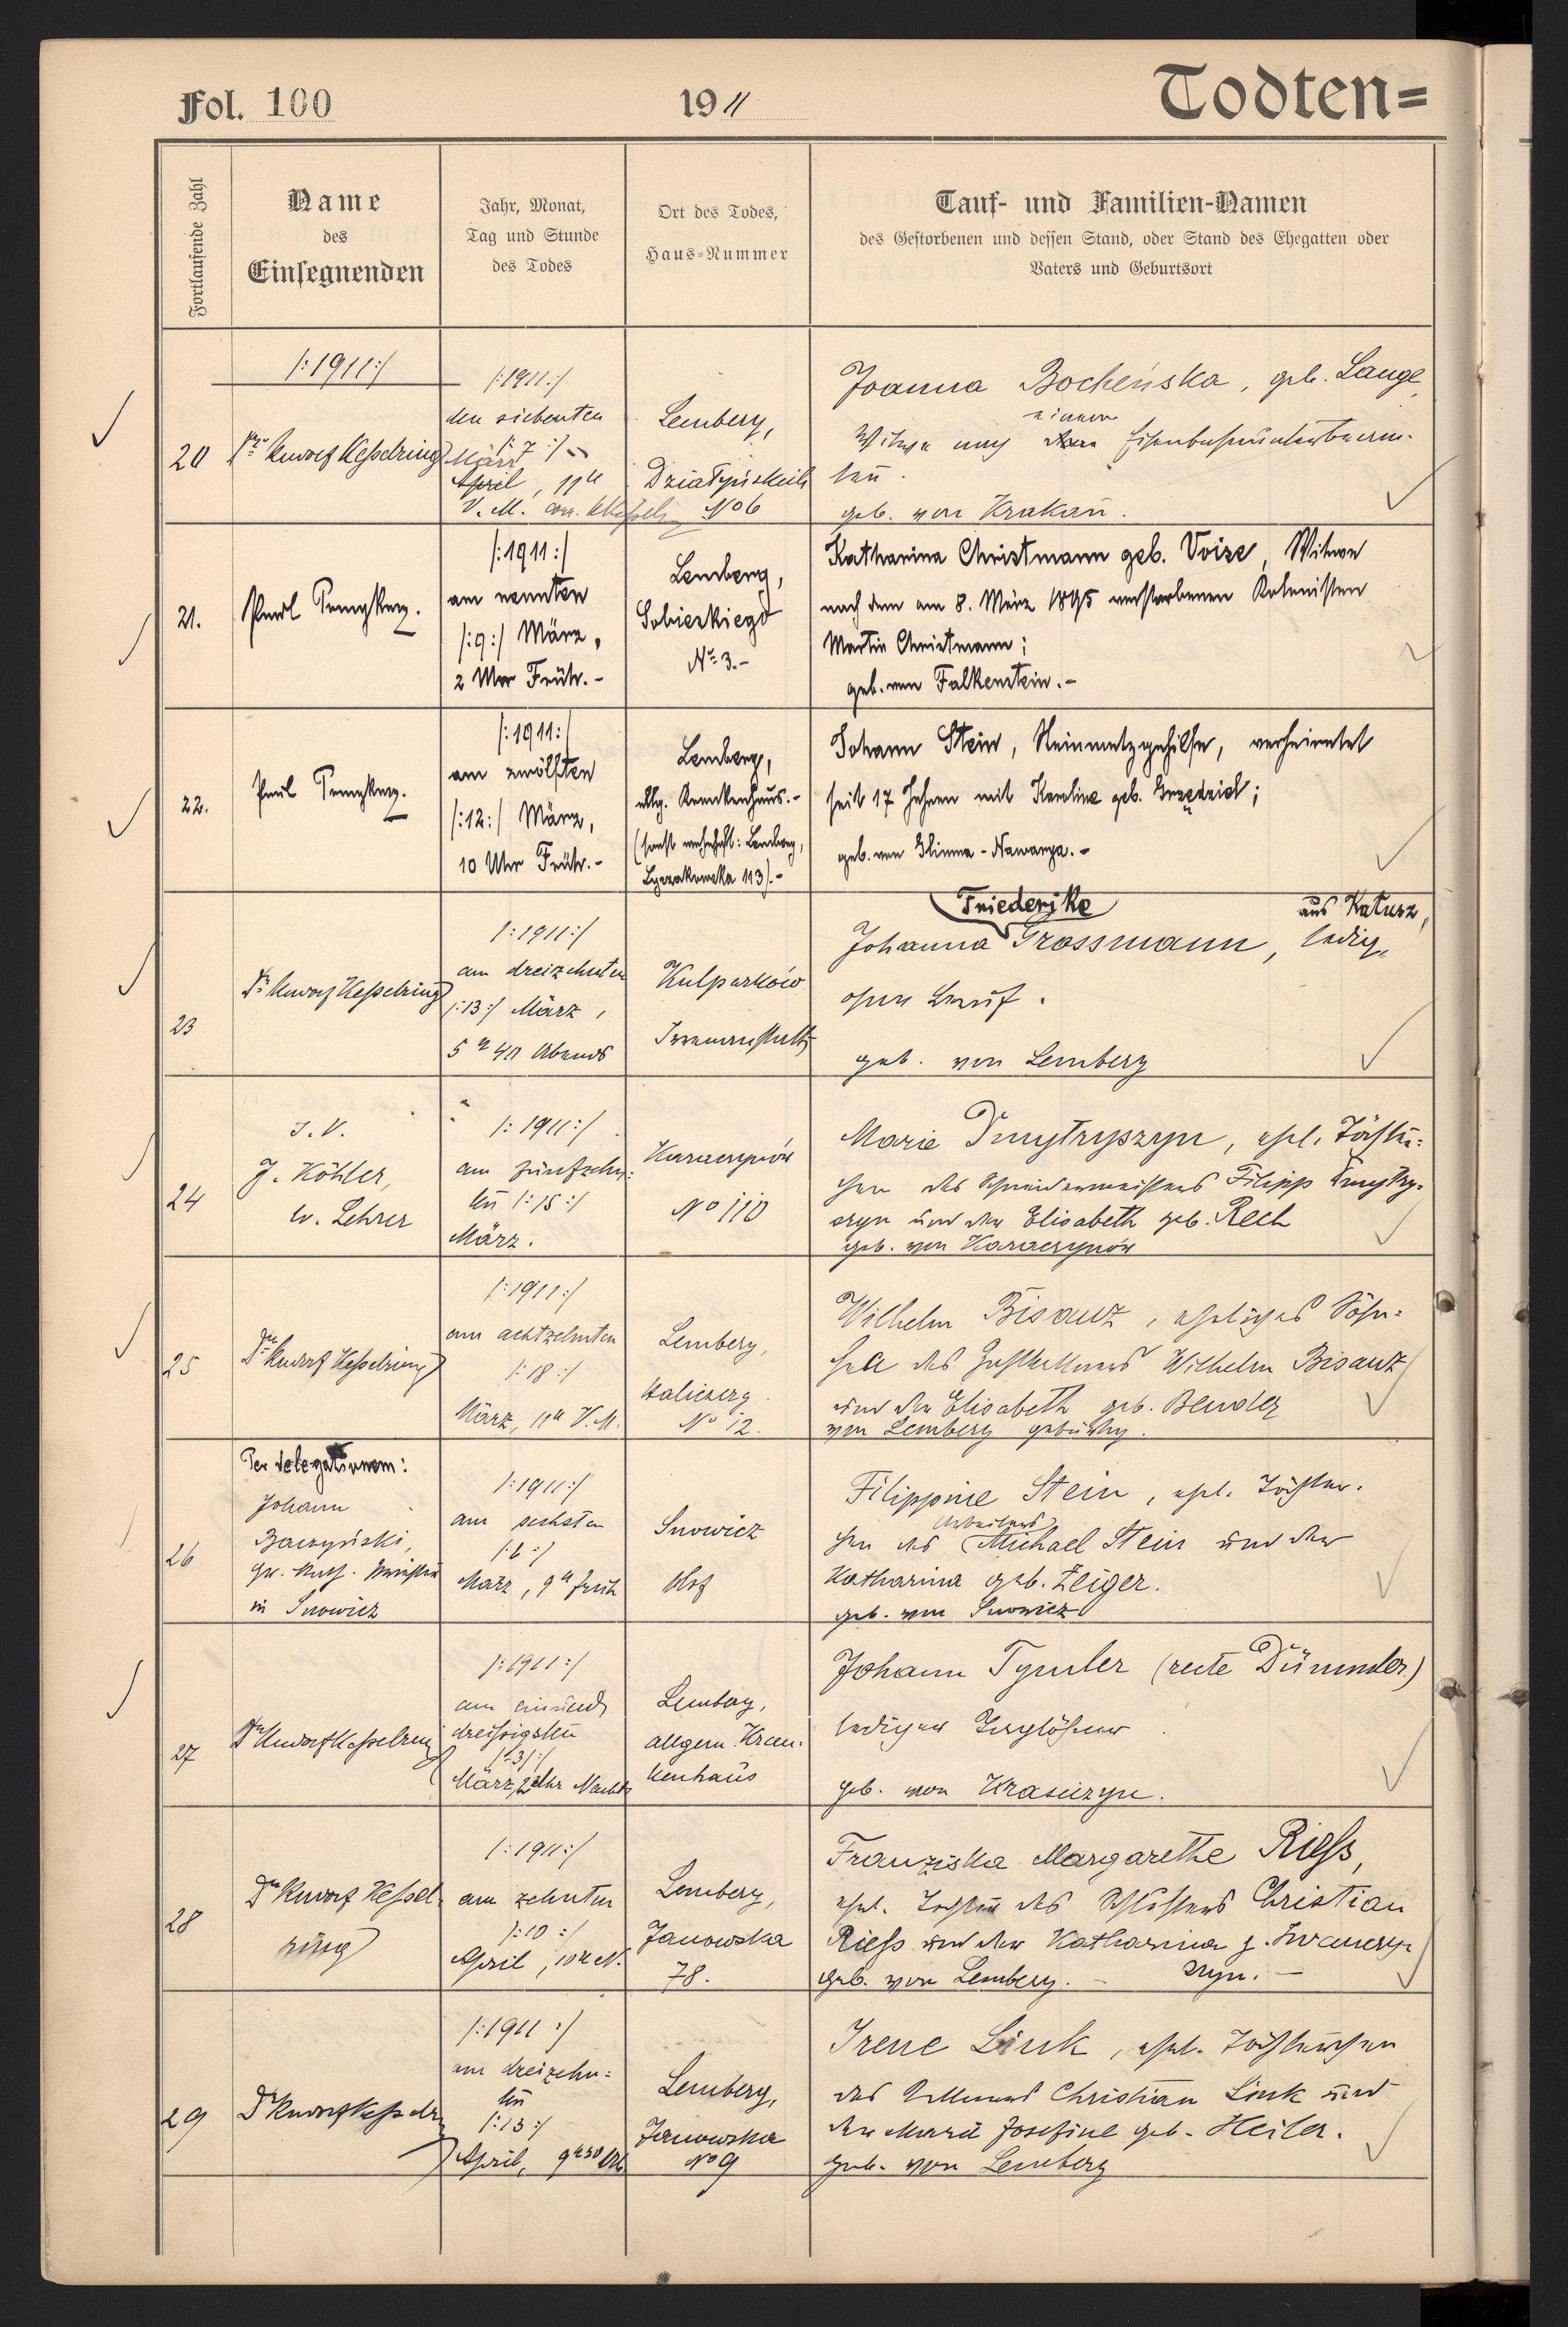 Fol. 100
1911
Todten=
Fortlaufende Zahl
Name
des
Einsegnenden
Jahr, Monat,
Tag und Stunde
des Todes
Ort des Todes,
Haus-Nummer
Tauf- und Familien-Namen
des Gestorbenen und dessen Stand, oder Stand des Ehegatten oder
Vaters und Geburtsort
/:1911:/
20
Dr Rudolf Kesselring
/:1911:/
den siebenten
/:7:/
März
April, 11h
V. M. corr.
Lemberg,
No 6
Joanna Bocheńska, geb. Lange,
einem
Witwe nach
geb. von Krakau.
21.
Paul
/:1911:/
am neunten
/:9:/ März,
2 Uhr Früh.-
Lemberg,
Sobieskiego
No 3.-
Katharina Christmann geb. Voize, Witwe
nach dem am 8. März 1895 verstorbenen Kolonisten
Martin Christmann;
geb. von Falkenstein.-
22.
Paul
/:1911:/
am zwölften
/:12:/ März,
10 Uhr Früh.-
Lemberg,
allg. Krankenhaus.-
(sonst wohnhaft: Lemberg,
Łyczakowska 113).-
Johann Stein, Steinmetzgehilfe, verheiratet
seit 17 Jahren mit Karoline geb. Grzędziel;
geb. von Glinna-Nawarya.-
23
Dr Rudolf Kesselring
/:1911:/
am dreizehnten
/:13:/ März,
5 h 40 Abends
Kulparków
Irrenanstalt
Friederike
aus Katusz,
Johanna Grossmann, ledig,
ohne Beruf.
geb. von Lemberg
24
I. V.
J. Köhler,
ev. Lehrer
/:1911:/
am fünfzehn=
ten /:15:/
März.
Karaczynów
No 110
Marie Dmytryszyn, ehel. Töchter=
chen des Schneidermeisters Filipp Dmytry=
szyn und der Elisabeth geb. Rech
geb. von Karaczynów
25
Dr Rudolf Kesselring
/:1911:/
am achtzehnten
/:18:/
März, 11h V.M.
Lemberg,
No 12.
Wilhelm Bisanz, eheliches Söhn=
chen des Wilhelm Bisanz
und der Elisabeth geb. Bender
von Lemberg gebürtig.
26
Per delegationem:
Johann
Baczyński,
in Snowicz
/:1911:/
am sechsten
/:6:/
März, 9h früh
Snowicz
Filippine Stein, ehel. Töchter-
Arbeiters
chen des Michael Stein und der
Katharina geb. Zeiger.
geb. von Snowicz
27
Dr Rudolf Kesselring
/:1911:/
am einund
dreißigsten
/:31:/
März, 2 Uhr Nachts
Lemberg,
allgem. Kran-
kenhaus
Johann Tymler (recte Dümmler)
lediger Taglöhner
geb. von Krasiczyn.
28
Dr Rudolf Kessel-
ring
/:1911:/
am zehnten
/:10:/
April, 10h N.
Lemberg,
Janowska
78.
Franziska Margarethe Rieß,
ehel. Tochter des Schlossers Christian
Rieß und der Katharina g. Iwanczy-
szyn.-
geb. von Lemberg.-
29
Dr Rudolf Kesselring
/:1911:/
am dreizehn=
ten
/:13:/
April, 9h30
Lemberg,
Janowska
No 9
Irene Link, ehel. Töchterchen
des Christian Link und
der Marie Josefine geb. Heiler.
geb. von Lemberg